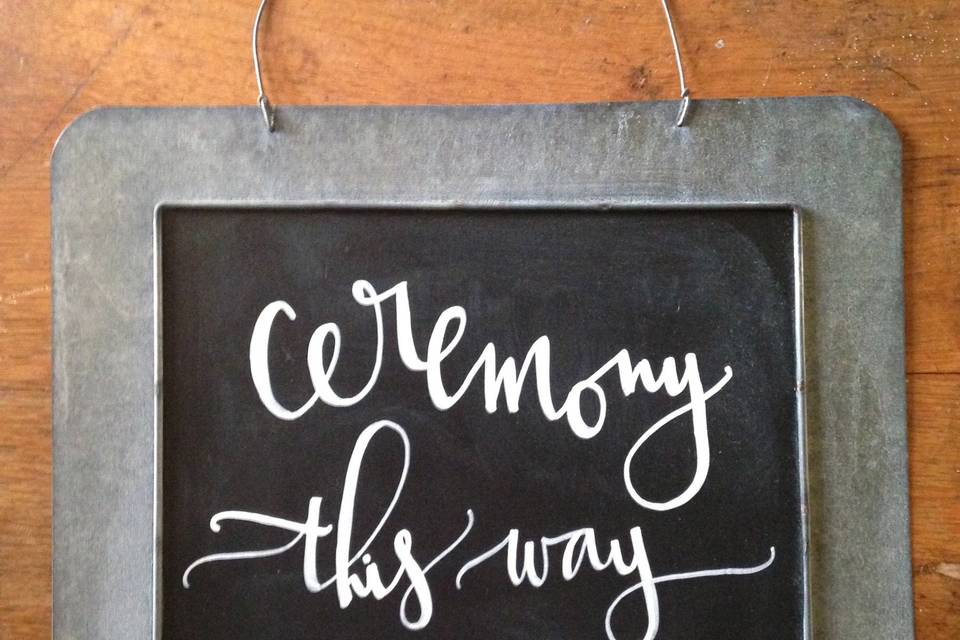 ceremony
this way